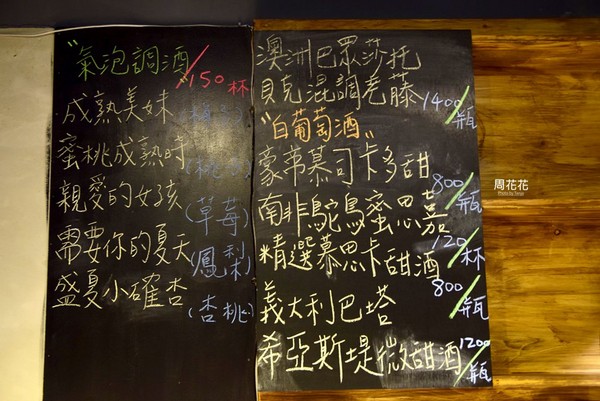 〝氣泡調酒 /150杯
成熟美妹 (梅子)
蜜桃成熟時 (桃子)
親愛的女孩 (草莓)
需要你的夏天 (鳳梨)
盛夏小確杏 (杏桃)
澳洲巴眾莎托
貝克混調老藤 1400/瓶
〝白葡萄酒〞
蒙弗慕司卡多甜 800/瓶
南非鴕鳥蜜思嘉 120/杯
精選慕思卡甜酒 800/瓶
義大利巴塔
希亞斯堤微甜酒 1200/瓶
周花花